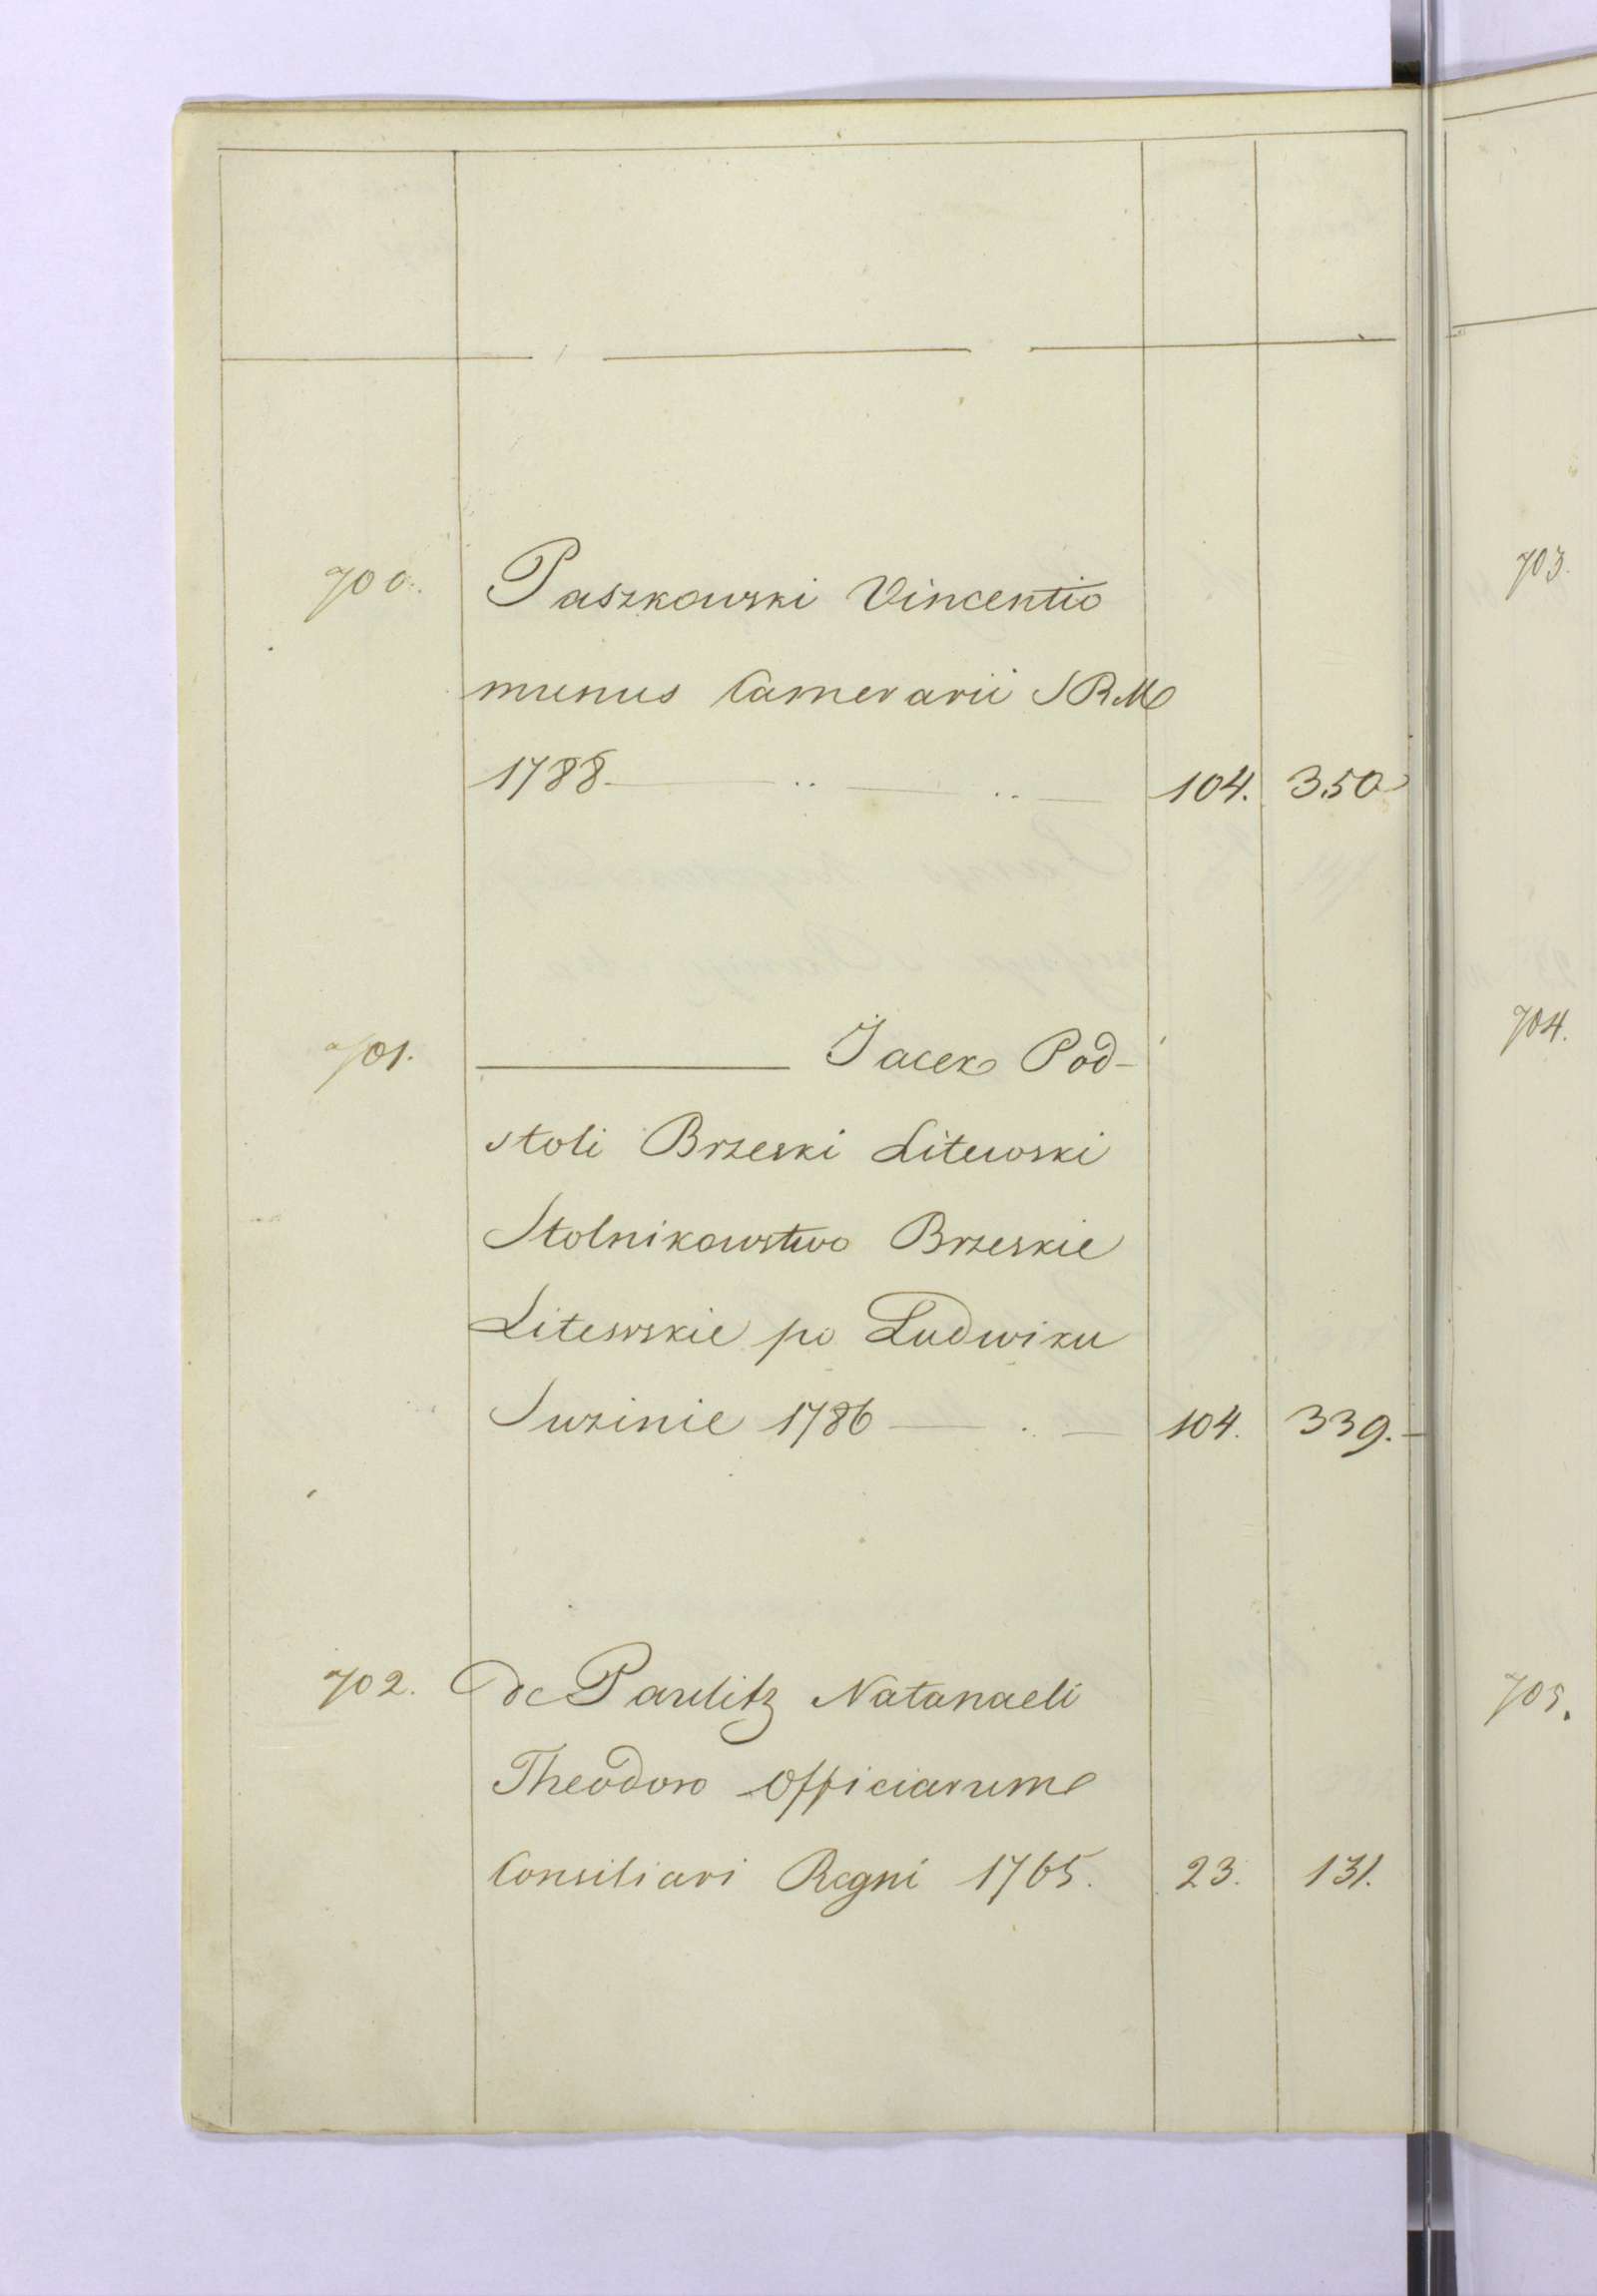 700. Paszkowski Vincentio
munus Camerarii SRM
1788 104. 350
701. Jacek Pod-
stoli Brzeski Litewski
Stolnikowstwo Brzeskie
Litewskie po Ludwiku
Suzinie 1786 104. 339.
702. de Paulitz Natanaeli
Theodoro Officiarume
Consiliari Regni 1765. 23. 131.
703.
704.
705.